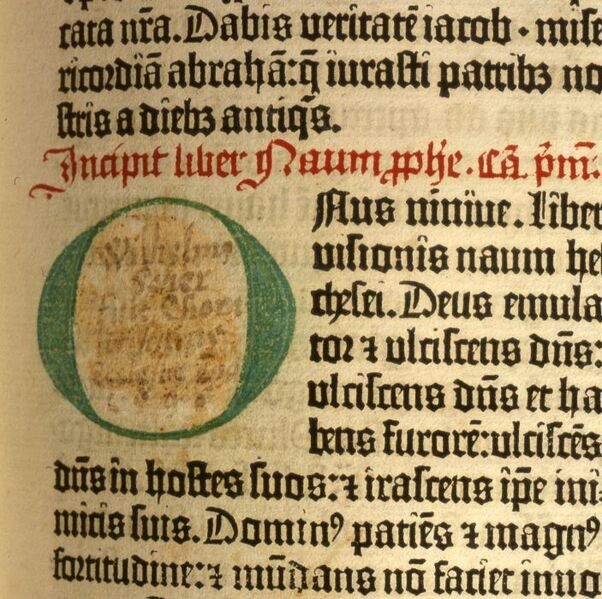 cata nr̃a. Dabis veritatē iacob · mise
ricordiā abrahã: q̃ iurasti patribꝫ no
stris a diebꝫ antiq̃s.
Incipit liber Naum ꝓphe. cã. pm̃.
ONus ninive. Liber
visionis naum he
lchesei. Deus emula
tor ⁊ ulciscens dñs:
ulciscens dñs et ha
bens furorē: ulciscēs
dñs in hostes suos: ⁊ irascens ip̃e ini
micis suis. Dominꝰ patiēs ⁊ magnꝰ
fortitudine: ⁊ mūdans nō faciet inno